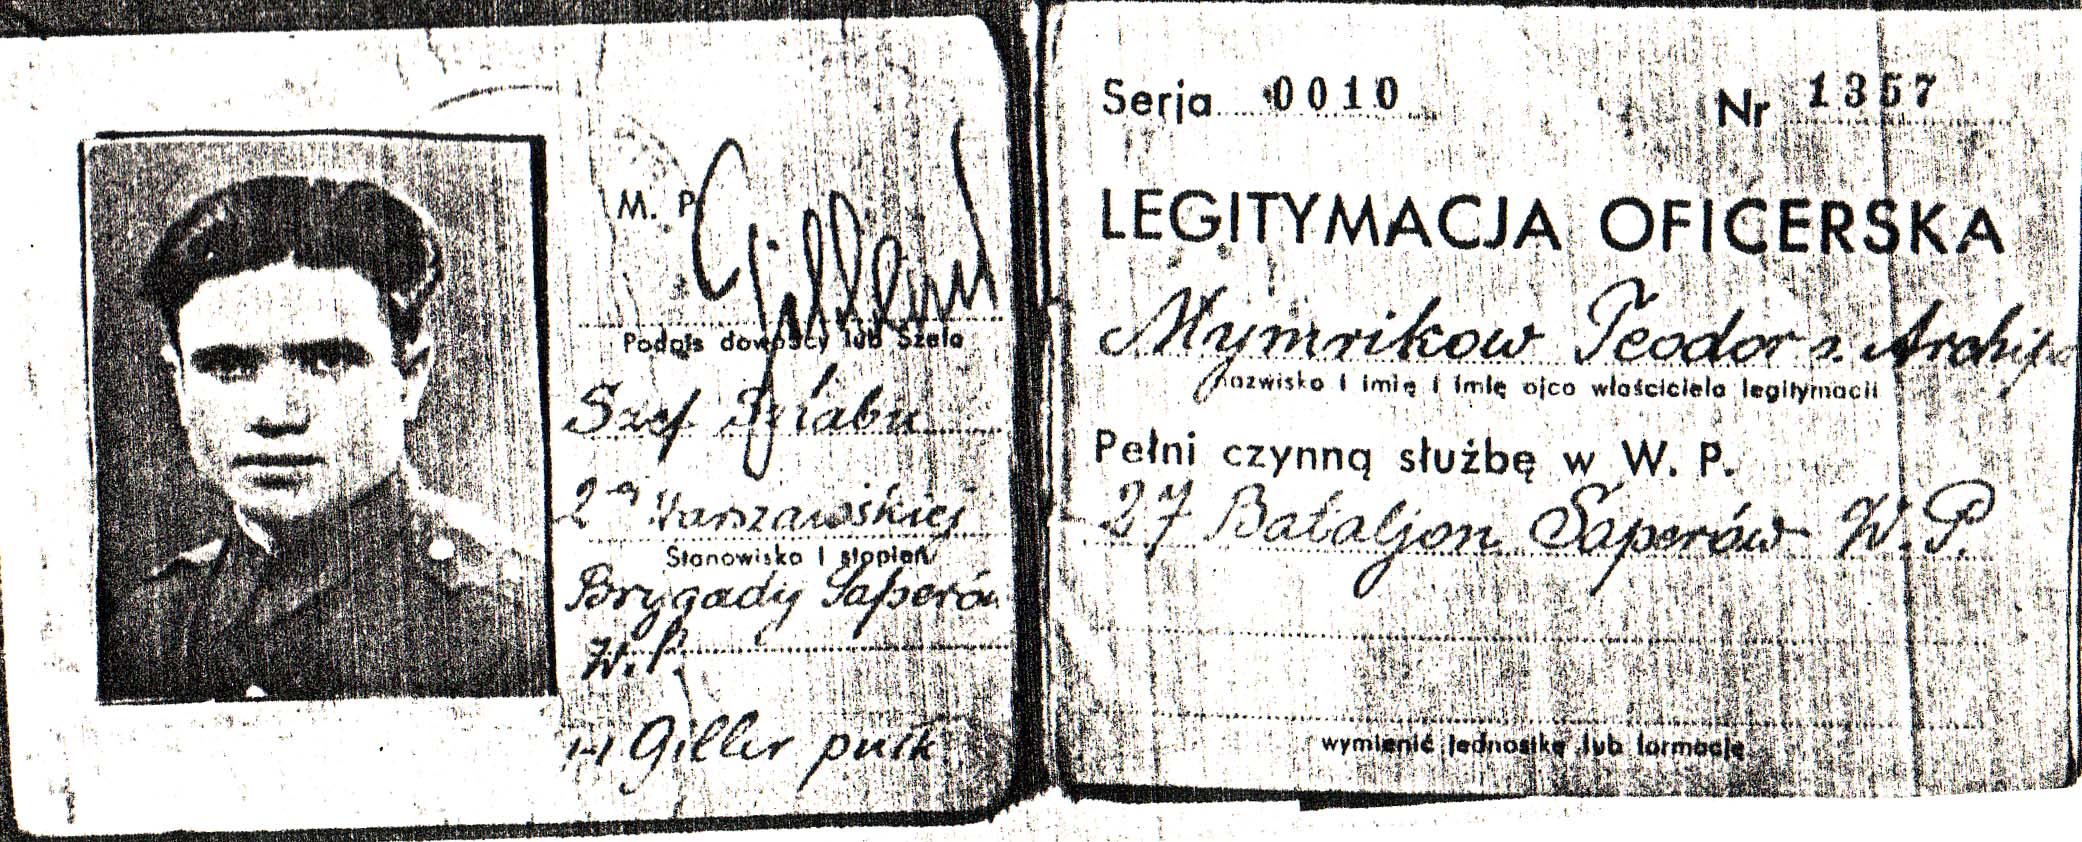 M. P.
Podpis dowódcy lub Szefa
Szef Sztabu
2-ej Warszawskiej
Stanowisko i stopień
Brygady Saperów
W.P.
Giller płk
Serja 0010 Nr 1357
LEGITYMACJA OFICERSKA
Mymrikow Teodor s. Archipa
nazwisko i imię i imię ojca właściciela legitymacji
Pełni czynną służbę w W. P.
27 Bataljon Saperów W.P.
wymienić jednostkę lub formację